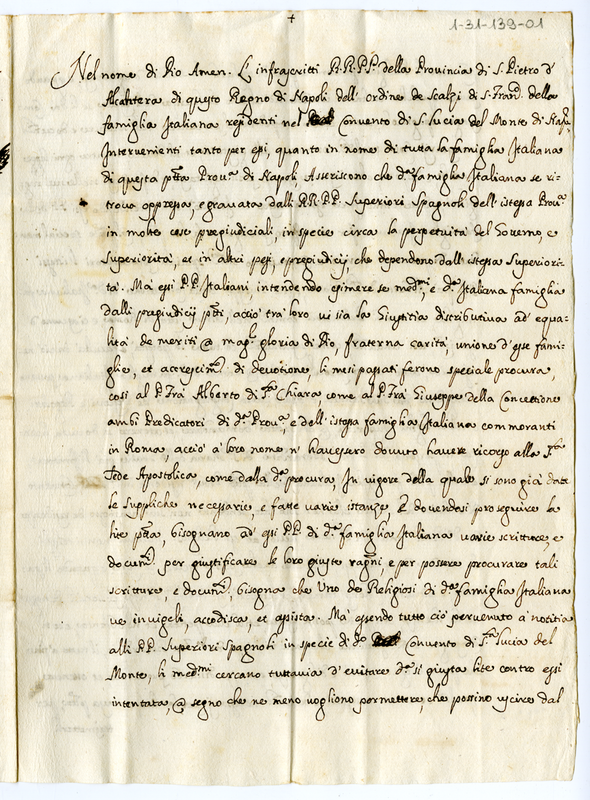 +
1-31-139-01
Nel nome di Dio Amen. L'infrascritti R.R.P.P. della Provincia di S. Pietro d'
Alcantera di questo Regno di Napoli dell'ordine de Scalzi di S. Fran.co della
famiglia Italiana residenti nel Convento di S. Lucia del Monte di Nap.
Intervenienti tanto per essi, quanto in nome di tutta la famiglia Italiana
di questa p.tta Prov.a di Napoli. Asseriscono che d.a famiglia Italiana se ri-
trova oppressa, e gravata dalli R.R.P.P. Superiori Spagnoli dell'istessa Prov.a
in molte cose pregiudiciali, in specie circa la perpetuità del Governo, e
Superiorità, et in altri pesi, e pregiudicij, che dependono dall'istessa Superiori-
tà. Mà essi P.P. Italiani, intendendo esimere se med.mi, e d.a Italiana famiglia
dalli pregiudicij p.tti, acciò trà loro vi sia la Giustitia distributiva ad equa-
lità de meriti @ mag.r gloria di Dio, fraterna carità unione d'esse fami-
glie, et accrescim.to di devotione, li mesi passati ferono speciale procura,
così al P. Frà Alberto di S.ta Chiara, come al P. Frà Giuseppe della Concettione
ambi Predicatori di d.a Prov.a, e dell'istessa famiglia Italiana commoranti
in Roma, acciò à loro nome n'havessero dovuto havere ricorso alla S.ta
Sede Apostolica, come dalla d.a procura, In vigore della quale si sono già date
le suppliche necessarie, e fatte varie istanze, E dovendosi proseguire la
lite p.tta, bisognano ad essi P.P. di d.a famiglia Italiana varie scritture, e
docum.ti per giustificare le loro giuste ragni e per possere procurare tali
scritture, e docum.ti, bisogna che Uno de Religiosi di d.a famiglia Italiana
ve invigeli, accodisca, et assista. Mà essendo tutto ciò pervenuto à notitia
alli P.P. Superiori Spagnoli in specie di d.o Convento di S.ta Lucia del
Monte, li med.mi cercano tuttavia d'evitare d.a si giusta lite contro essi
intentata, @ segno che ne meno vogliono permettere, che possino uscire dal